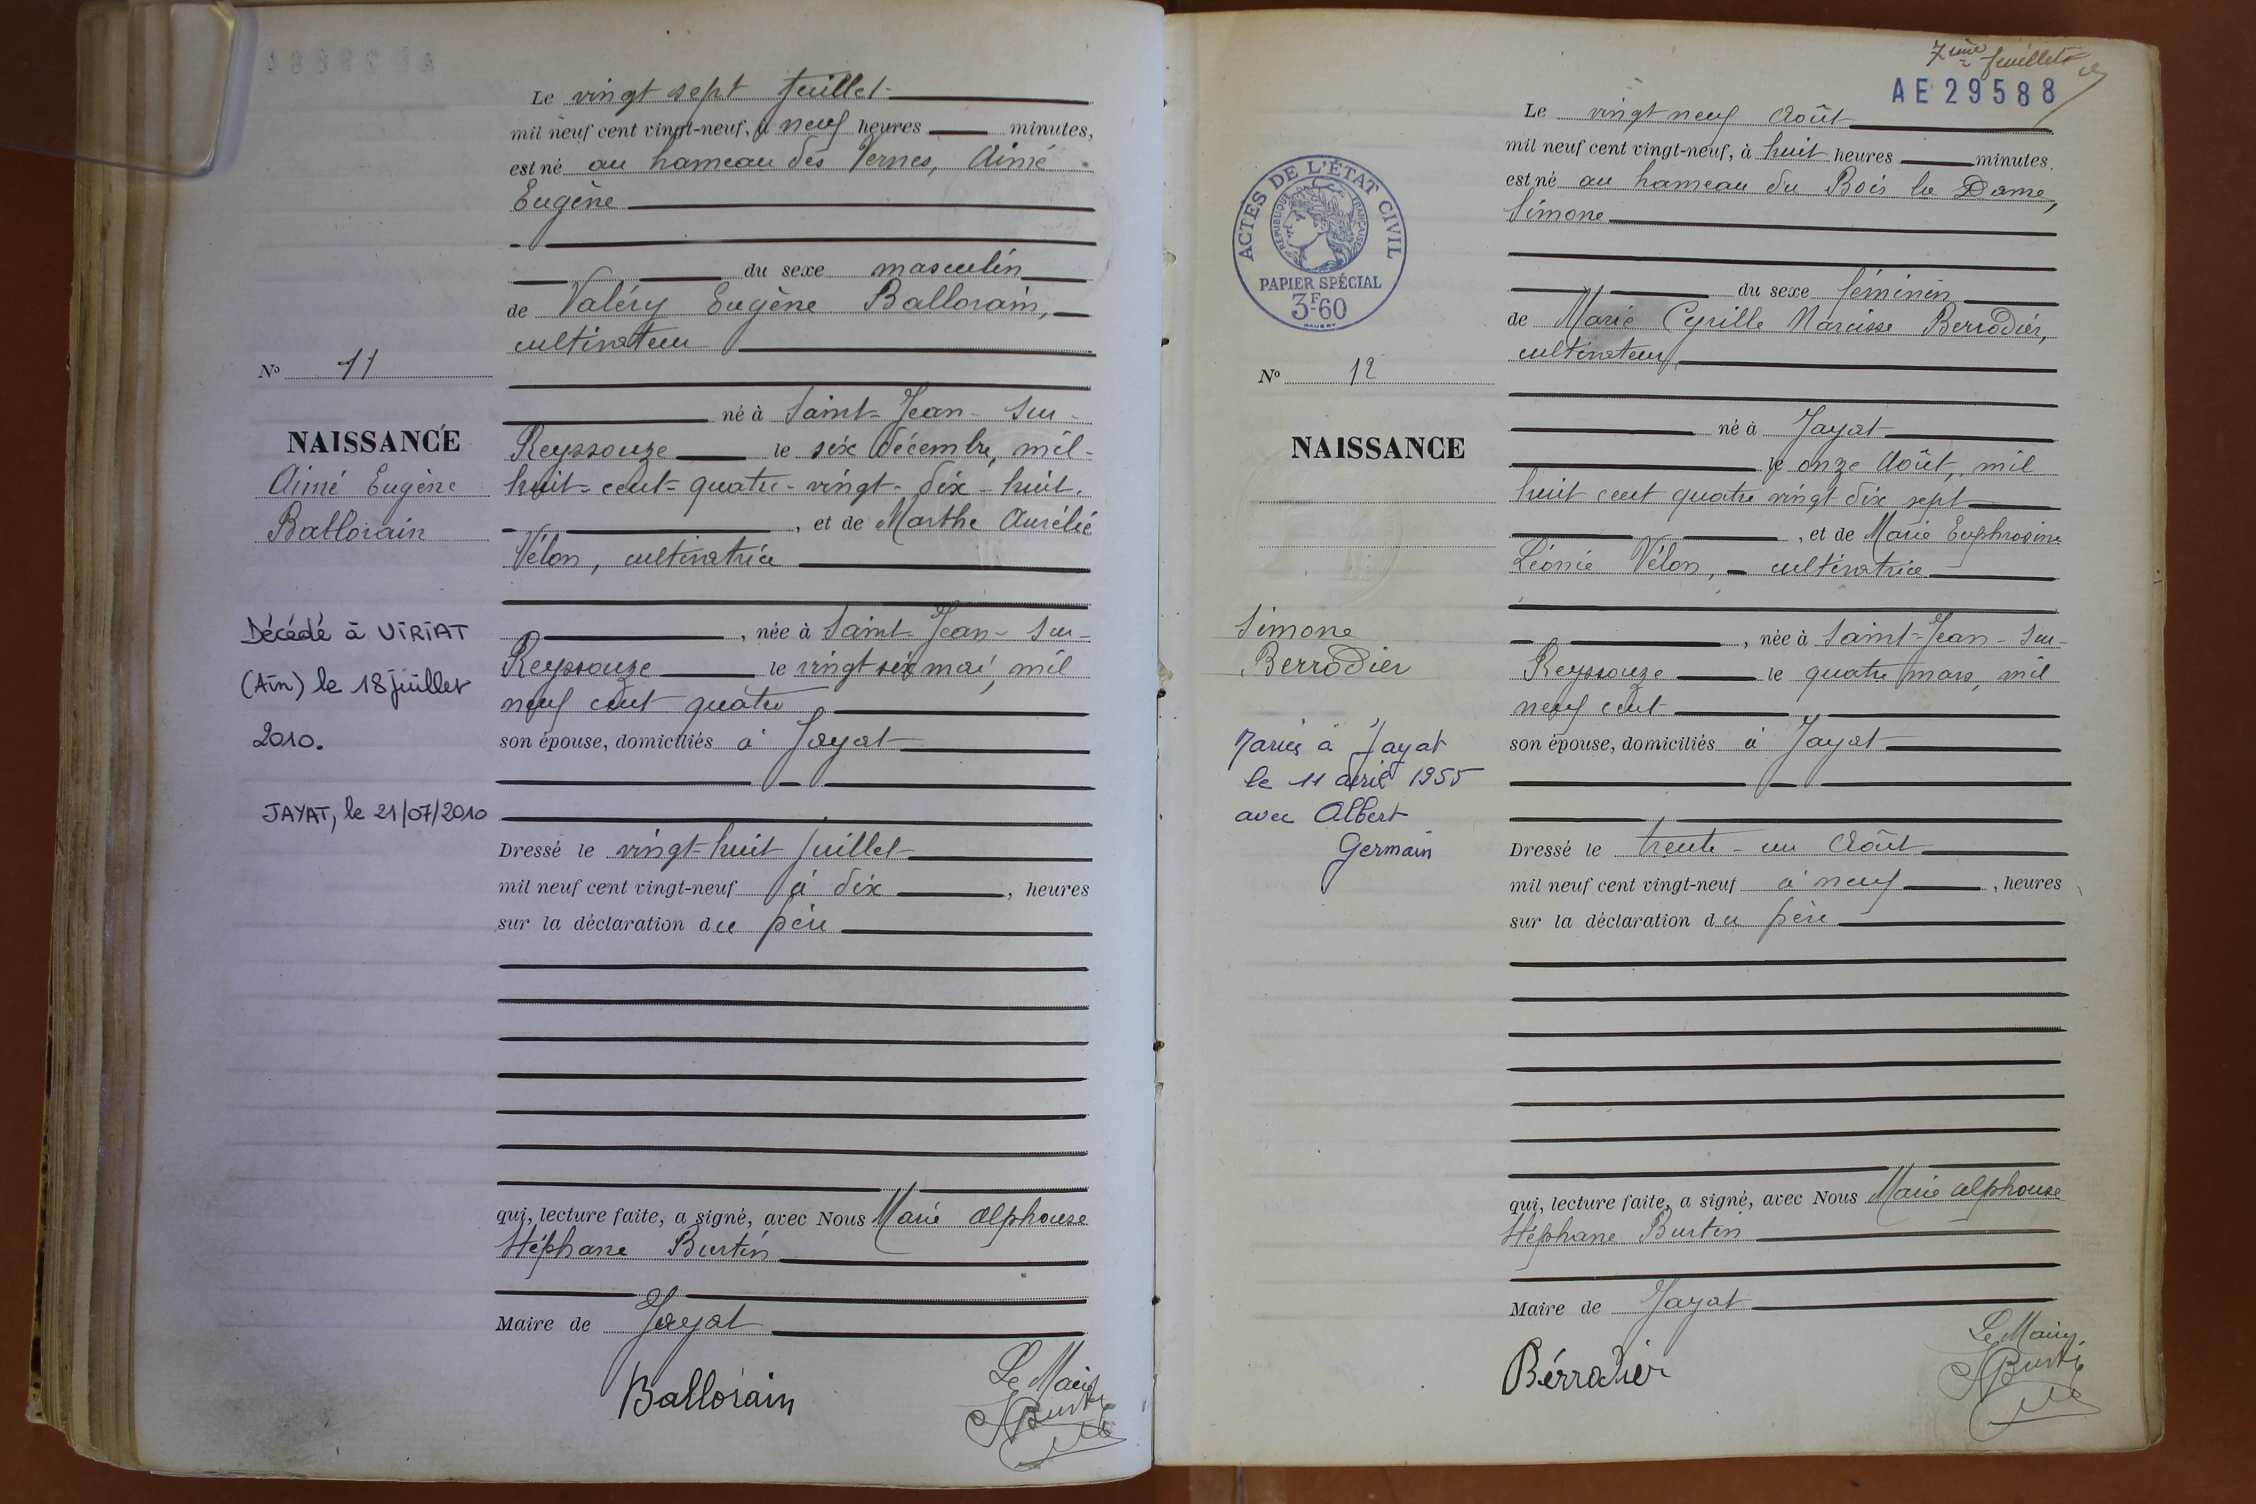 Le vingt sept Juillet
mil neuf cent vingt-neuf, à neuf heures minutes,
est né au hameau des Vernes, Aimé
Eugène
du sexe masculin
de Valéry Eugène Ballorain,
cultivateur
né à Saint-Jean-sur-
Reyssouze le six décembre, mil-
huit-cent-quatre-vingt-dix-huit.
, et de Marthe Aurélie
Vélon, cultivatrice
, née à Saint-Jean-sur-
Reyssouze le vingt six mai, mil
neuf cent quatre
son épouse, domiciliés à Jayat
Dressé le vingt-huit Juillet
mil neuf cent vingt-neuf à dix , heures
sur la déclaration du père
qui, lecture faite, a signé, avec Nous Marie Alphonse
Stéphane Burtin
Maire de Jayat
Ballorain
Le Maire
Burtin
No 11
NAISSANCE
Aimé Eugène
Ballorain
Décédé à VIRIAT
(Ain) le 18 juillet
2010.
JAYAT, le 21/07/2010
7ème feuillet
AE 29588
Le vingt neuf Août
mil neuf cent vingt-neuf, à huit heures minutes
est né au hameau du Bois la Dame,
Simone
du sexe féminin
de Marie Cyrille Narcisse Berrodier,
cultivateur
né à Jayat
le onze Août, mil
huit cent quatre vingt dix sept
, et de Marie Euphrosine
Léonie Vélon, cultivatrice
, née à Saint-Jean-sur-
Reyssouze le quatre mars, mil
neuf cent
son épouse, domiciliés à Jayat
Dressé le trente-un Août
mil neuf cent vingt-neuf à neuf , heures
sur la déclaration du père
qui, lecture faite, a signé, avec Nous Marie Alphonse
Stéphane Burtin
Maire de Jayat
Bérrodier
Le Maire,
Burtin
ACTES DE L'ÉTAT CIVIL
RÉPUBLIQUE FRANÇAISE
PAPIER SPÉCIAL
3F-60
No 12
NAISSANCE
Simone
Berrodier
Mariée à Jayat
le 11 avril 1955
avec Albert
Germain